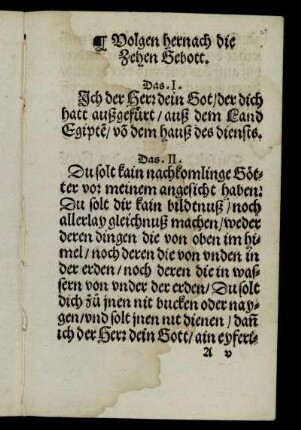 ¶ Volgen hernach die
Zehen Gebott.
Das . I .
Ich der Herꝛ dein Got/der dich
hatt außgefürt/auß dem Land
Egiptẽ/võ dem hauß des diensts.
Das . II .
Du solt kain nachkomlinge Göt-
ter voꝛ meinem angesicht haben:
Du solt dir kain bildtnuß/noch
allerlay gleichnuß machen/weder
deren dingen die von oben im hi-
mel/noch deren die von vnden in
der erden/noch deren die in was-
sern von vnder der erden/Du solt
dich zů jnen nit bucken oder nay-
gen/vnd solt jnen nit dienen/dañ
ich der Herꝛ dein Gott/ain eyferi-
A v